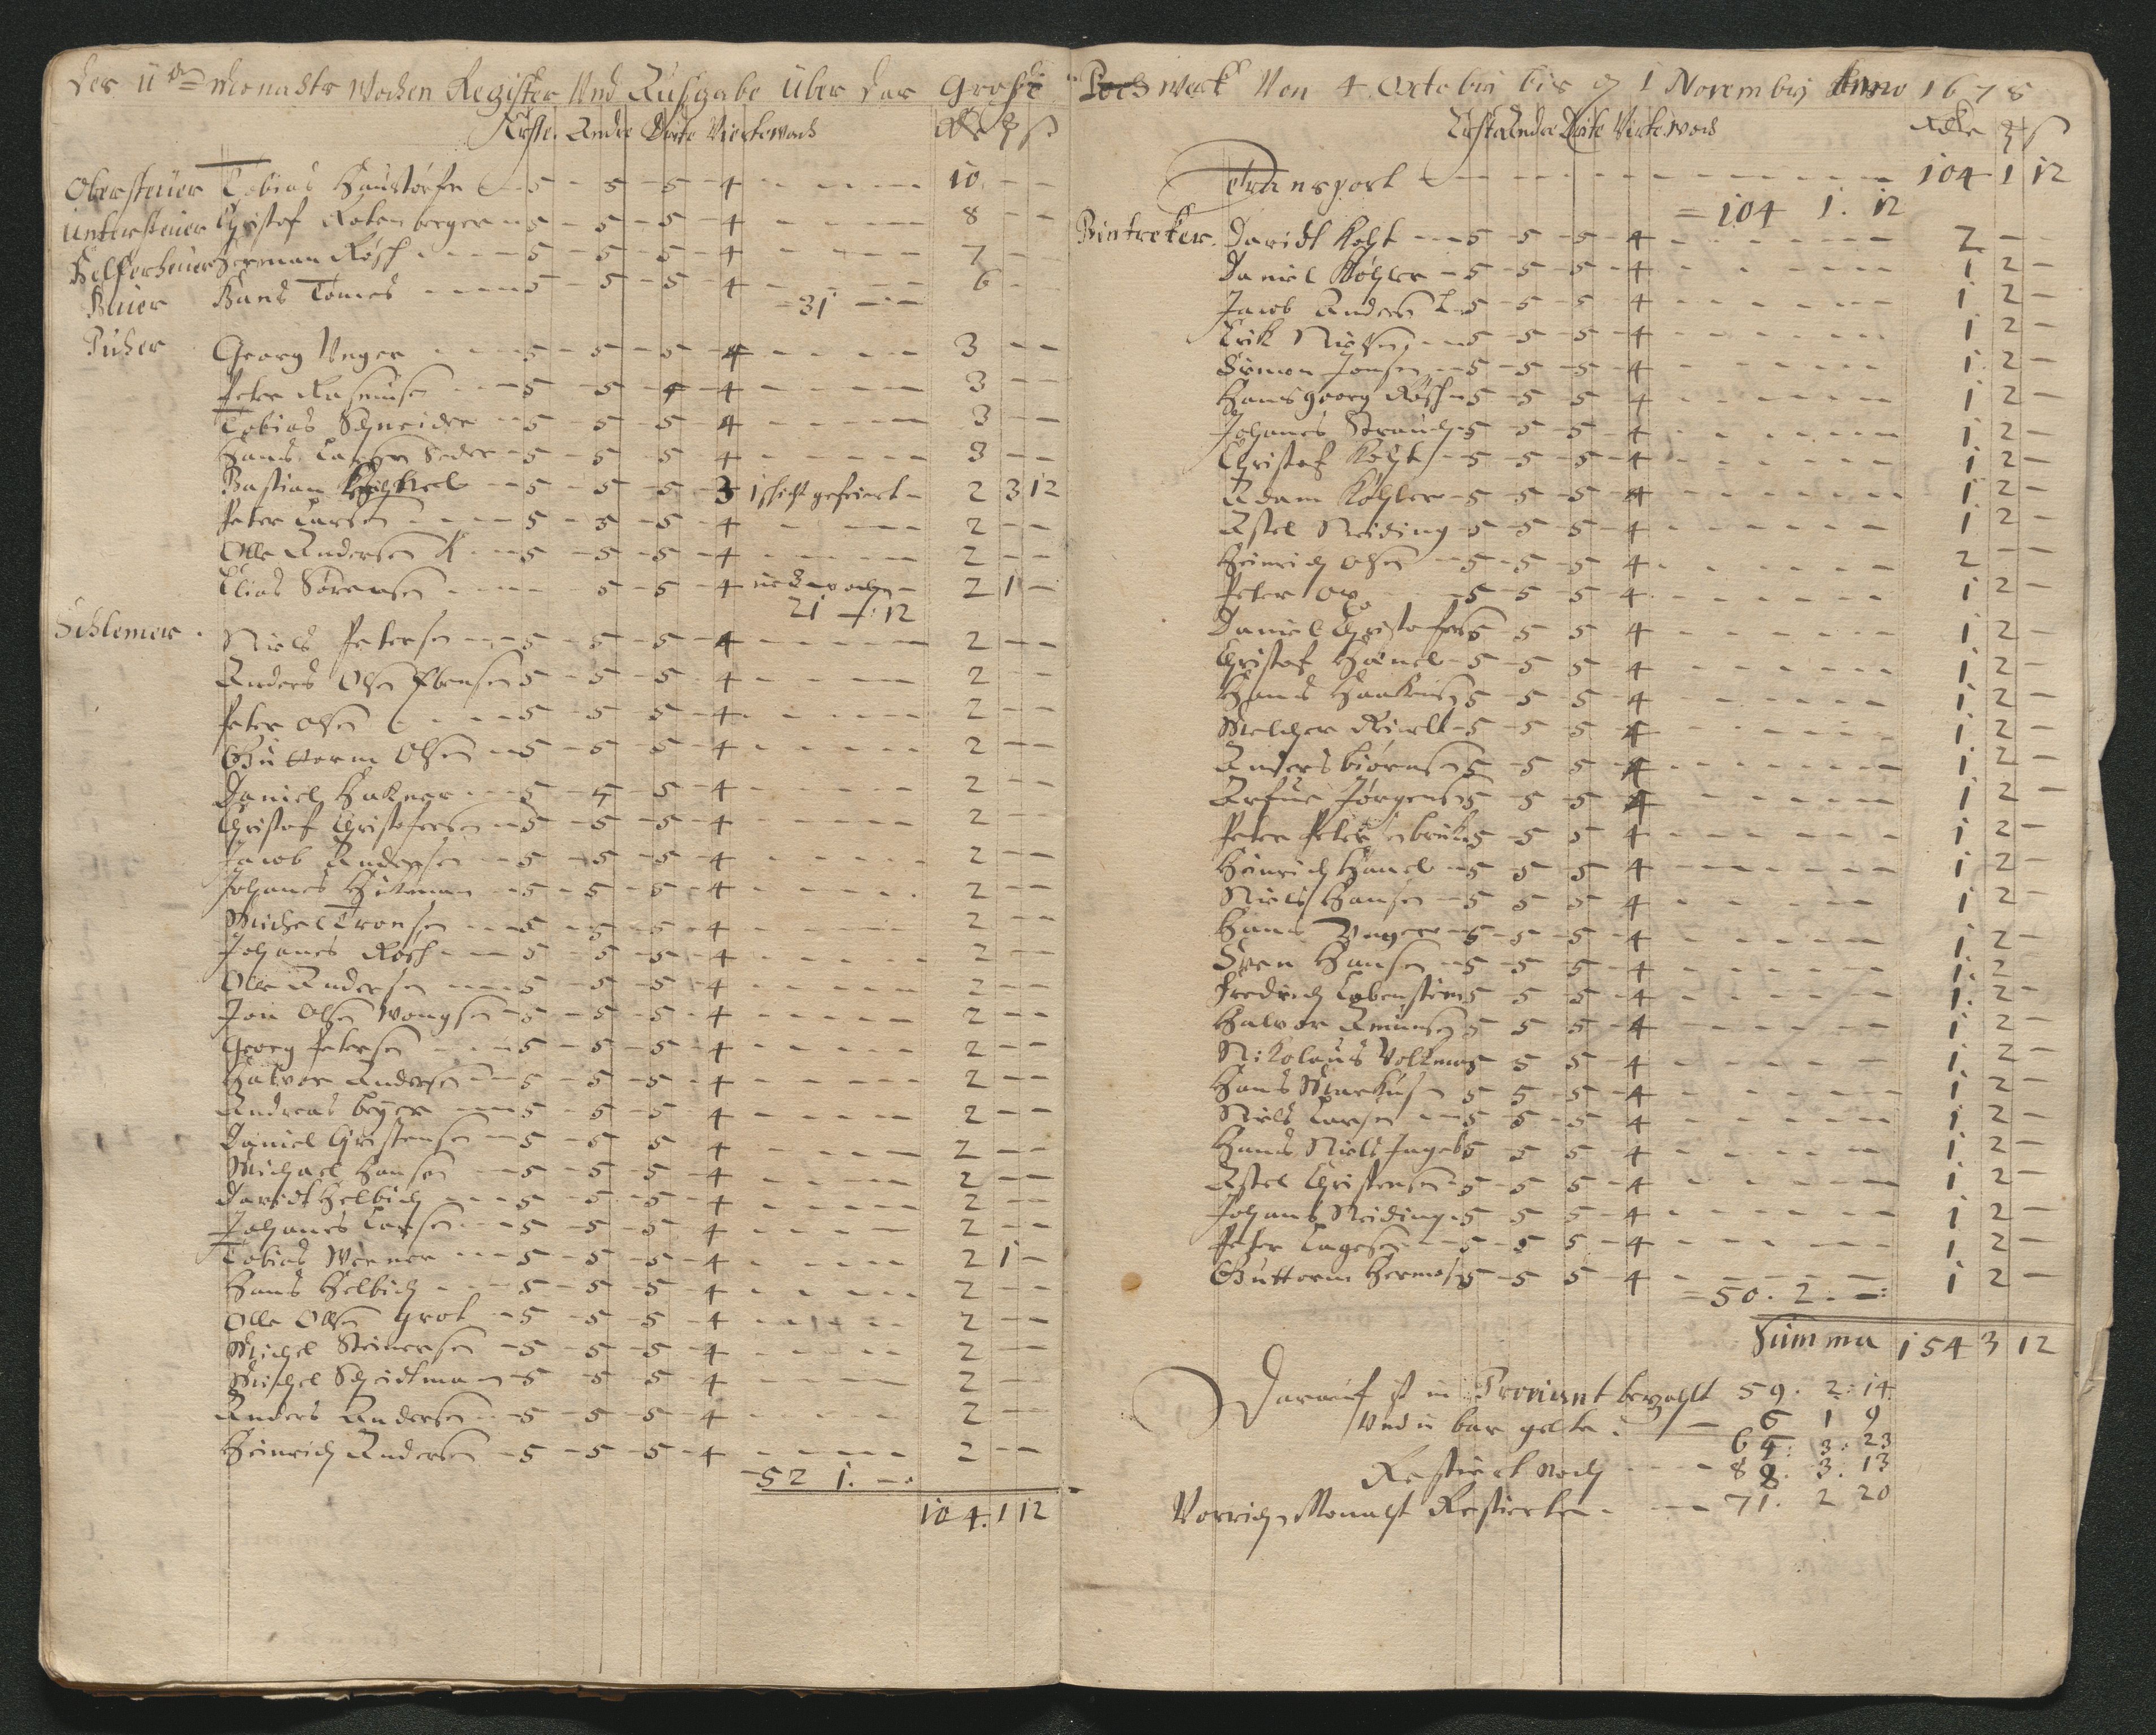 Der 11te Monadts Wochen Register Und Ausgabe über das Große
Erste Andre Drite Vierte woch Rdlr
Obersteiier Tobias Haustörfer 5 5 5 4 10
Untersteiier Christof Rotenberger 5 5 5 4 8
Helfersteiier Herman Rösch 5 5 5 4 7
Steiier Hans Tomes 5 5 5 4 6
31
Pucher Georg Unger 5 5 5 4 3
Peter Rasmusen 5 5 4 4 3
Tobias Schneider 5 5 5 4 3
Hans Larsen Seder 5 5 5 4 3
Bastian 5 5 5 3 1 schicht gefeiert 2 3 12
Peter Larsen 5 5 5 4 2
Olle Andersen K 5 5 5 4 2
Elias Sørensen 5 5 4 2 1
21 12
Schlemer
Niels Petersen 5 5 5 4 2
Anders Olsen Ebensen 5 5 5 4 2
Peter Olsen 5 5 5 4 2
Guttorm Olsen 5 5 5 4 2
Daniel Hakner 5 5 5 4 2
Christof Christofersen 5 5 5 4 2
Jacob Andersen 5 5 5 4 2
Johanes Hütman 5 5 5 4 2
Michel Tronsen 5 5 5 4 2
Johanes Rösch 5 5 5 4 2
Olle Andersen 5 5 5 4 2
Jon Olsen Wongsen 5 5 5 4 2
Georg Petersen 5 5 5 4 2
Halvor Andersen 5 5 5 4 2
Andreas beyer 5 5 5 4 2
Daniel Christensen 5 5 5 4 2
Michael Hansen 5 5 5 4 2
Davidt Helbich 5 5 5 4 2
Johanes Larsen 5 5 5 4 2
Tobias Werner 5 5 5 4 2 1
Hans Helbich 5 5 5 4 2
Olle Olsen grot 5 5 5 4 2
Michel Steinersen 5 5 5 4 2
Michel Scheidtman 5 5 5 4 2
Anders Andersen 5 5 5 4 2
Heinrich Andersen 5 5 5 4 2
52 1.
104. 1 12
Poch werk Von 4 Octobrij bis 1 Novembrij Anno 1678
Erste Andre Drite Virte woch Rdlr
Transport 104 1 12
104 1. 12
Bintreker. Davidt Koht 5 5 5 4 2
Daniel Köhler 5 5 5 4 1 2
Jacob Andersen L 5 5 5 4 1 2
Erik Nielsen 5 5 5 4 1 2
Simon Jonsen 5 5 5 4 1 2
Hans georg Rösch 5 5 5 4 1 2
Johanes Strauch 5 5 5 4 1 2
Christof Koht 5 5 5 4 1 2
Adam Köhler 5 5 5 4 1 2
Astel Neiding 5 5 5 4 1 2
Heinrich Olsen 5 5 5 4 2
Peter 5 5 5 4 1 2
Daniel Christofers 5 5 5 4 1 2
Christof Hänel 5 5 5 4 1 2
Hans Haakensen 5 5 5 4 1 2
Melcher 5 5 5 4 1 2
Anders biörnsen 5 5 5 4 1 2
Arfue Jörgensen 5 5 5 4 1 2
Peter Petersen 5 5 5 4 1 2
Heinrich Hänel 5 5 5 4 1 2
Niels Hansen 5 5 5 4 1 2
Hans Unger 5 5 5 4 1 2
Sven Hansen 5 5 5 4 1 2
Fredrich Lobenstein 5 5 5 4 1 2
Halvor Amunsen 5 5 5 4 1 2
Nikolaus Volkmar 5 5 5 4 1 2
Hans Markusen 5 5 5 4 1 2
Niels Larsen 5 5 5 4 1 2
Hans Niels Ingeb 5 5 5 4 1 2
Astel Christensen 5 5 5 4 1 2
Johans Neiding 5 5 5 4 1 2
Peter Lagesen 5 5 5 4 1 2
Guttorm Hermansen 5 5 5 4 1 2
50. 2.
Summa 154 3 12
Darauf ist in Proviant bezahlt 59. 2: 14.
Und in bar gelte 6 1 9
3: 23
Restiert Noch 88. 3. 13
Vorrich Monacht Restierten 71. 2 20